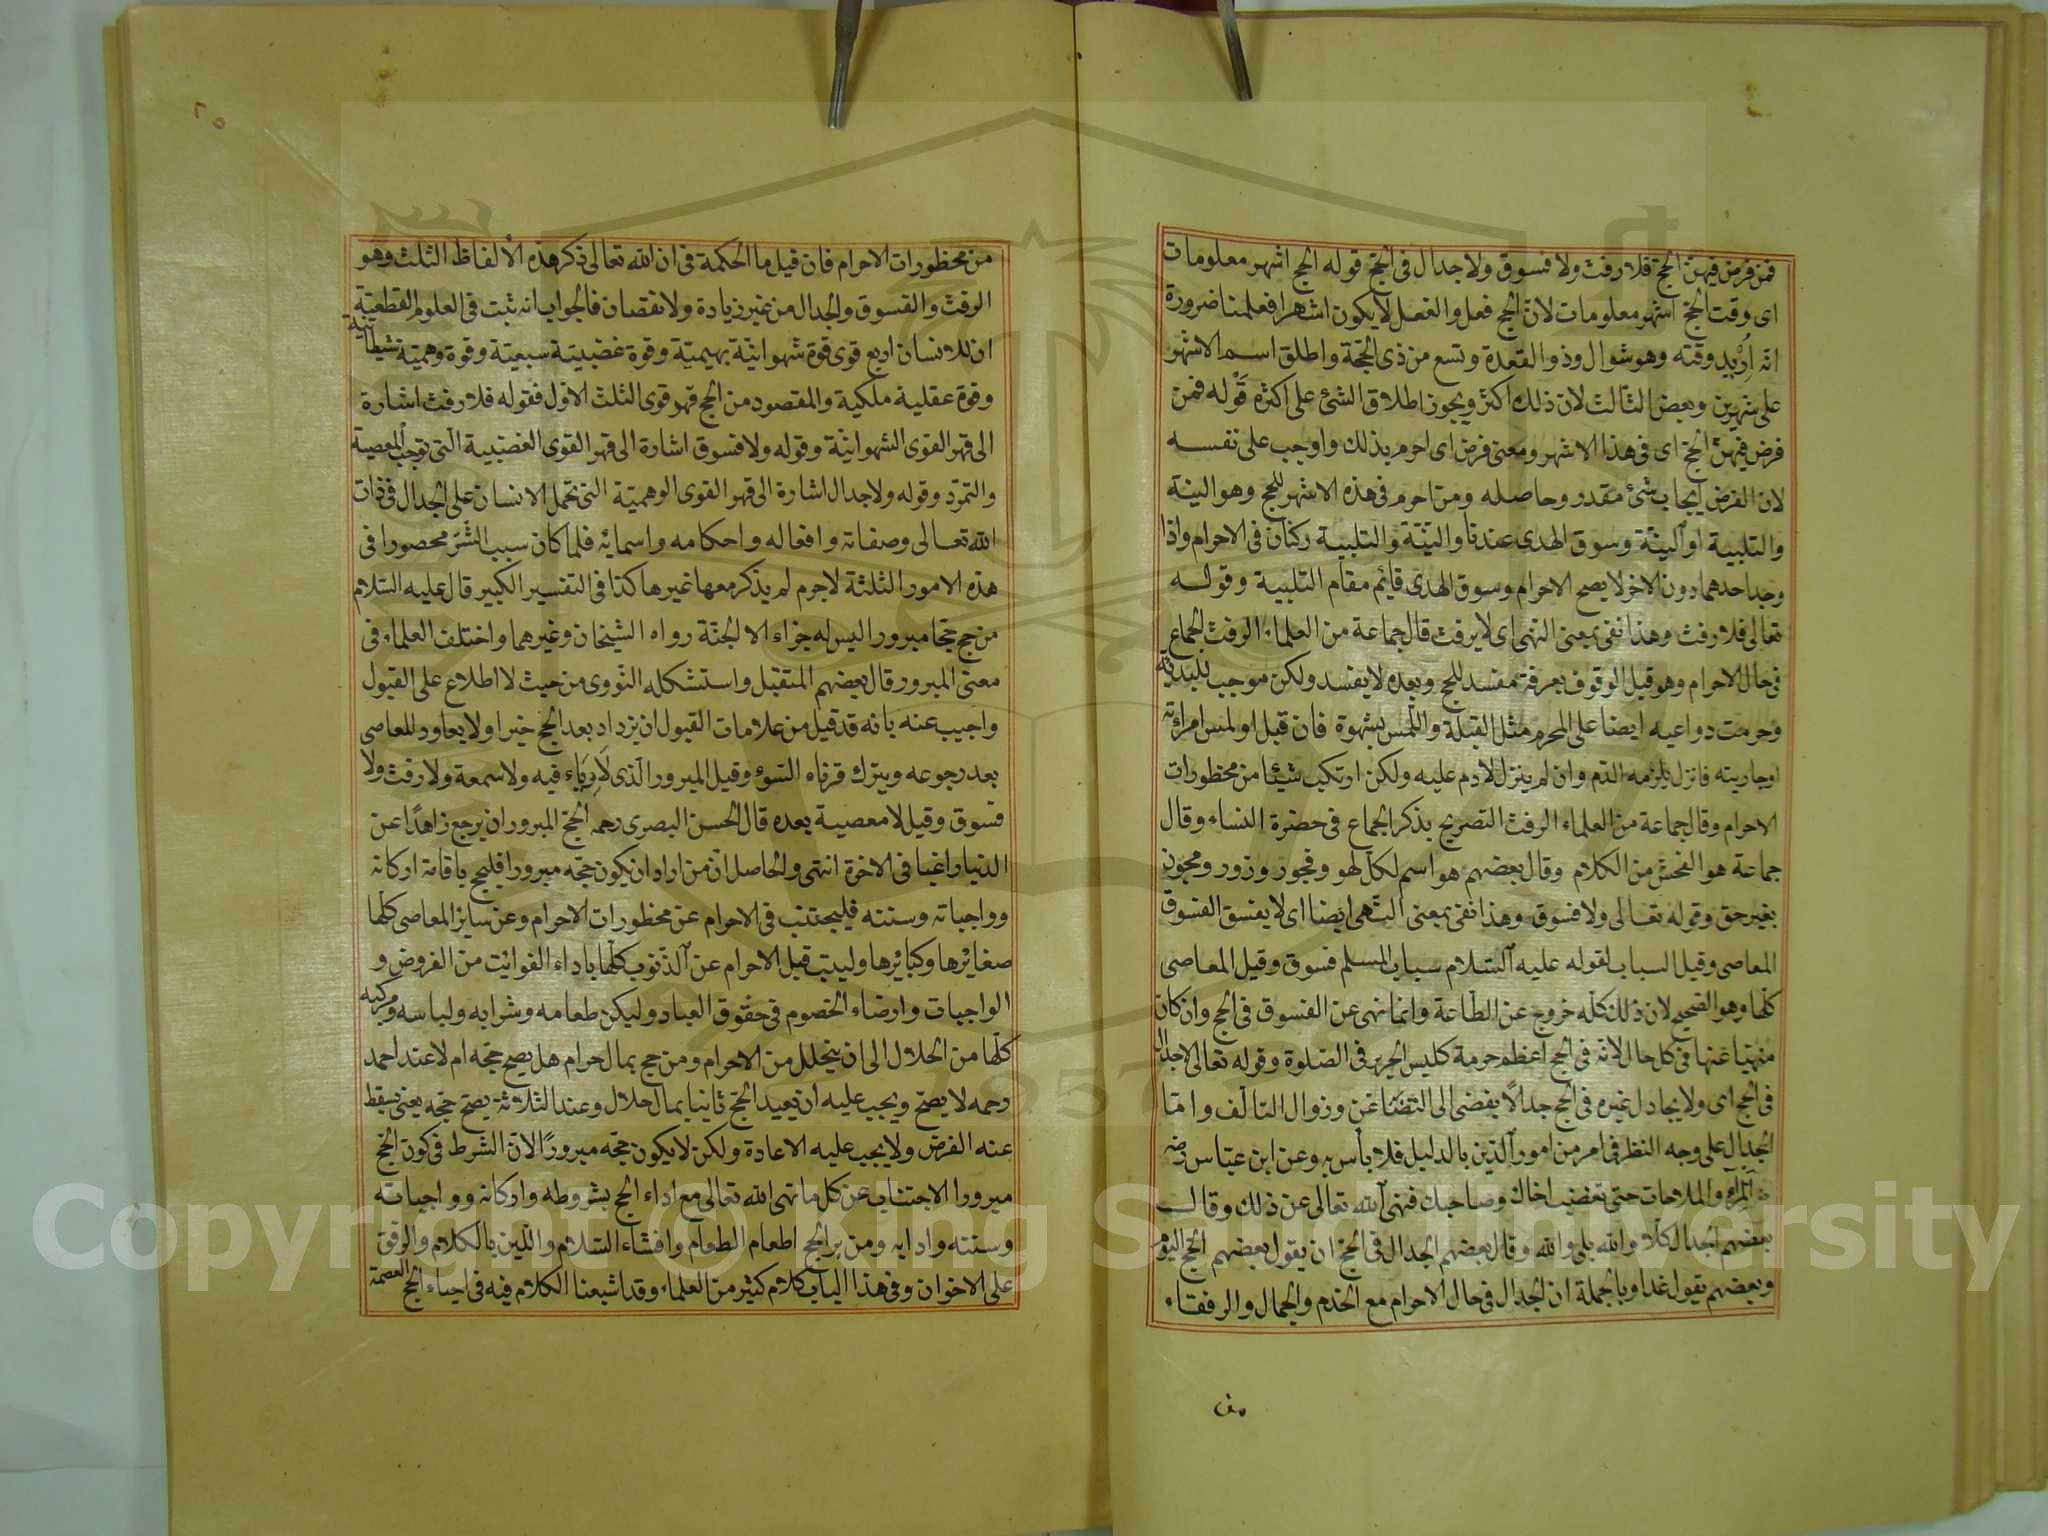 فمن فرض فيهن الحج فلا رفث ولا فسوق ولا جدال فى الحج قوله الحج اشهر معلومات
اى وقت الحج اشهر معلومات لان الحج فعل والفعل لا يكون اشهرا فعلمنا ضرورة
انه اُرِيد وقته وهو شوال وذو القعدة وتسع من ذى الحجة واطلق اسم الاشهر
على شهرين وبعض الثالث لان ذلك اكثر ويجوز اطلاق الشئ على اكثره قوله فمن
فرض فيهن الحج اى فى هذا الاشهر ومعنى فرض اى احرم بذلك واوجب على نفسه
لان الفرض ايجاب شئ مقدر وحاصله ومن احرم فى هذه الاشهر للحج وهو النية
والتلبية او النية وسوق الهدى عندنا والنية والتلبية ركنان فى الاحرام واذا
وجد احدهما دون الاخر لا يصح الاحرام وسوق الهدى قائم مقام التلبية وقوله
تعالى فلا رفث وهذا نفى بمعنى النهى اى لا يرفث قال جماعة من العلماء الرفث الجماع
فى حال الاحرام وهو قبل الوقوف بعرفة مفسد للحج وبعده لا يفسد ولكن موجب للبدنة
وحرمت دواعيه ايضا على المحرم مثل القبلة واللمس بشهوة فان قبل او لمس امرأته
او جاريته فانزل يلزمه الدم وان لم ينزل لا دم عليه ولكن ارتكب شيئا من محظورات
الاحرام وقال جماعة من العلماء الرفث التصريح بذكر الجماع فى حضرة النساء وقال
جماعة هو الفحش من الكلام وقال بعضهم هو اسم لكل لهو وفجور وزور ومجون
بغير حق وقوله تعالى ولا فسوق وهذا نفى بمعنى النهى ايضا اى لا يفسق الفسوق
المعاصى وقيل السباب لقوله عليه السلام سباب المسلم فسوق وقيل المعاصى
كلها وهو الصحيح لان ذلك كله خروج عن الطاعة وانما نهى عن الفسوق فى الحج وان كان
منهيا عنها فى كل حال لانه فى الحج اعظم حرمة كلبس الحرير فى الصلوة وقوله تعالى لا جدال
فى الحج اى ولا يجادل غيره فى الحج جدالا يفضى الى التضاغن وزوال التالف واما
الجدال على وجه النظر فى امر من امور الدين بالدليل فلا بأس به وعن ابن عباس رضه
المراء والملاحات حتى تغضب اخاك وصاحبك فنهى الله تعالى عن ذلك وقال
بعضهم الجدال كلا والله بلى والله وقال بعضهم الجدال فى الحج ان يقول بعضهم الحج اليوم
وبعضهم يقول غدا وبالجملة ان الجدال فى حال الاحرام مع الخدم والجمال والرفقاء
من
٦٥
من محظورات الاحرام فان قيل ما الحكمة فى ان الله تعالى ذكر هذه الالفاظ الثلث وهو
الرفث والفسوق والجدال من غير زيادة ولا نقصان فالجواب انه ثبت فى العلوم القطعية
ان للانسان اربع قوى قوة شهوانية بهيمية وقوة غضبية سبعية وقوة وهمية شيطانية
وقوة عقلية ملكية والمقصود من الحج قهر قوى الثلث الاول فقوله فلا رفث اشارة
الى قهر القوى الشهوانية وقوله ولا فسوق اشارة الى قهر القوى الغضبية التى توجب المعصية
والتمرد وقوله ولا جدال اشارة الى قهر القوى الوهمية التى تحمل الانسان على الجدال فى ذات
الله تعالى وصفاته وافعاله واحكامه واسمائه فلما كان سبب الشر محصورا فى
هذه الامور الثلثة لاجرم لم يذكر معها غيرها كذا فى التفسير الكبير قال عليه السلام
من حج حجا مبرورا ليس له جزاء الا الجنة رواه الشيخان وغيرهما واختلف العلماء فى
معنى المبرور قال بعضهم المتقبل واستشكله النووى من حيث لا اطلاع على القبول
واجيب عنه بانه قد قيل من علامات القبول ان يزداد بعد الحج خيرا ولا يعاود المعاصى
بعد رجوعه ويترك قرناء السوء وقيل المبرور الذى لا رياء فيه ولا سمعة ولا رفث ولا
فسوق وقيل لا معصية بعده قال الحسن البصرى رحمه الحج المبرور ان يرجع زاهدا عن
الدنيا راغبا فى الاخرة انتهى والحاصل ان من اراد ان يكون حجه مبرورا فليحج باقامة اركانه
وواجباته وسننه فليجتنب فى الاحرام عن محظورات الاحرام وعن سائر المعاصى كلها
صغائرها وكبائرها وليتب قبل الاحرام عن الذنوب كلها باداء الفوائت من الفروض و
الواجبات وارضاء الخصوم فى حقوق العباد وليكن طعامه وشرابه ولباسه ومركبه
كلها من الحلال الى ان يتحلل من الاحرام ومن حج بمال حرام هل يصح حجه ام لا عند احمد
رحمه لا يصح ويجب عليه ان يعيد الحج ثانيا بمال حلال وعند الثلاثة يصح حجه يعنى يسقط
عنه الفرض ولا يجب عليه الاعادة ولكن لا يكون حجه مبرورا لان الشرط فى كون الحج
مبرورا الاجتناب عن كل ما نهى الله تعالى مع اداء الحج بشروطه واركانه وواجباته
وسننه وادابه ومن بر الحج اطعام الطعام وافشاء السلام واللين بالكلام والرفق
على الاخوان وفى هذا الباب كلام كثير من العلماء وقد اشبعنا الكلام فيه فى احياء الحج العصمة
Copyright © King Saud University
1957